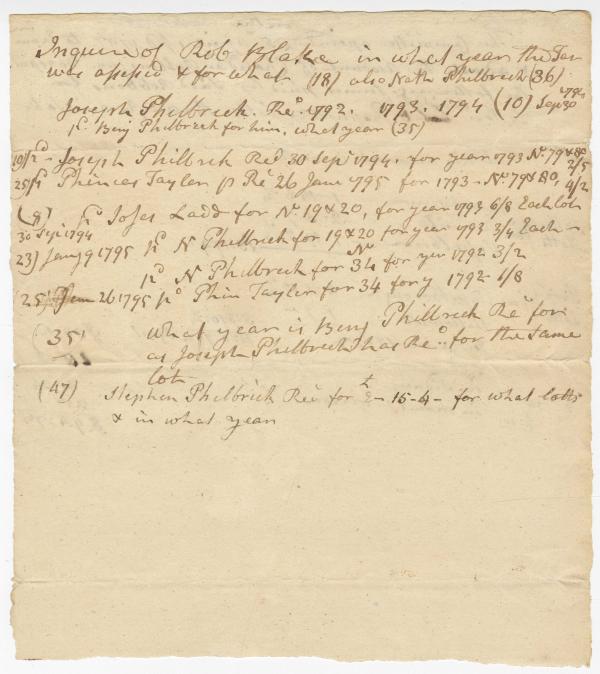 Inquire of Rob Blake in what year the Tax
was assessed & for what (18) also Nath Philbreck (36)
Joseph Philbreck. Rec. 1792. 1793. 1794 (10) Sep 30 1794
pd. Benj Philbreck for him, what year (35)
10) pd - Joseph Philbrick Recd 30 Sepr 1794. for year 1793 No. 79 & 80 2/5
25) pd Phineas Tayler pr Rec 26 Jany 1795 for 1793 - No. 79 & 80, 4/2
(8) pd Joses Ladd for No 19 & 20, for year 1793 6/8 Each lot
30 Sepr 1794
23) Jany 9 1795 pd N Philbreck for 19 & 20 for year 1793 3/4 Each -
pd N Philbreck for No 34 for year 1792 3/2
(25) Jan 26 1795 pd Phin Tayler for 34 for y 1792 - 1/8
(35) what year is Benj Philbreck Rec for
as Joseph Philbreck has Rec. for the same
lot
(47) Stephen Philbrick Rec for 15 - 4 - for what lotts
& in what year